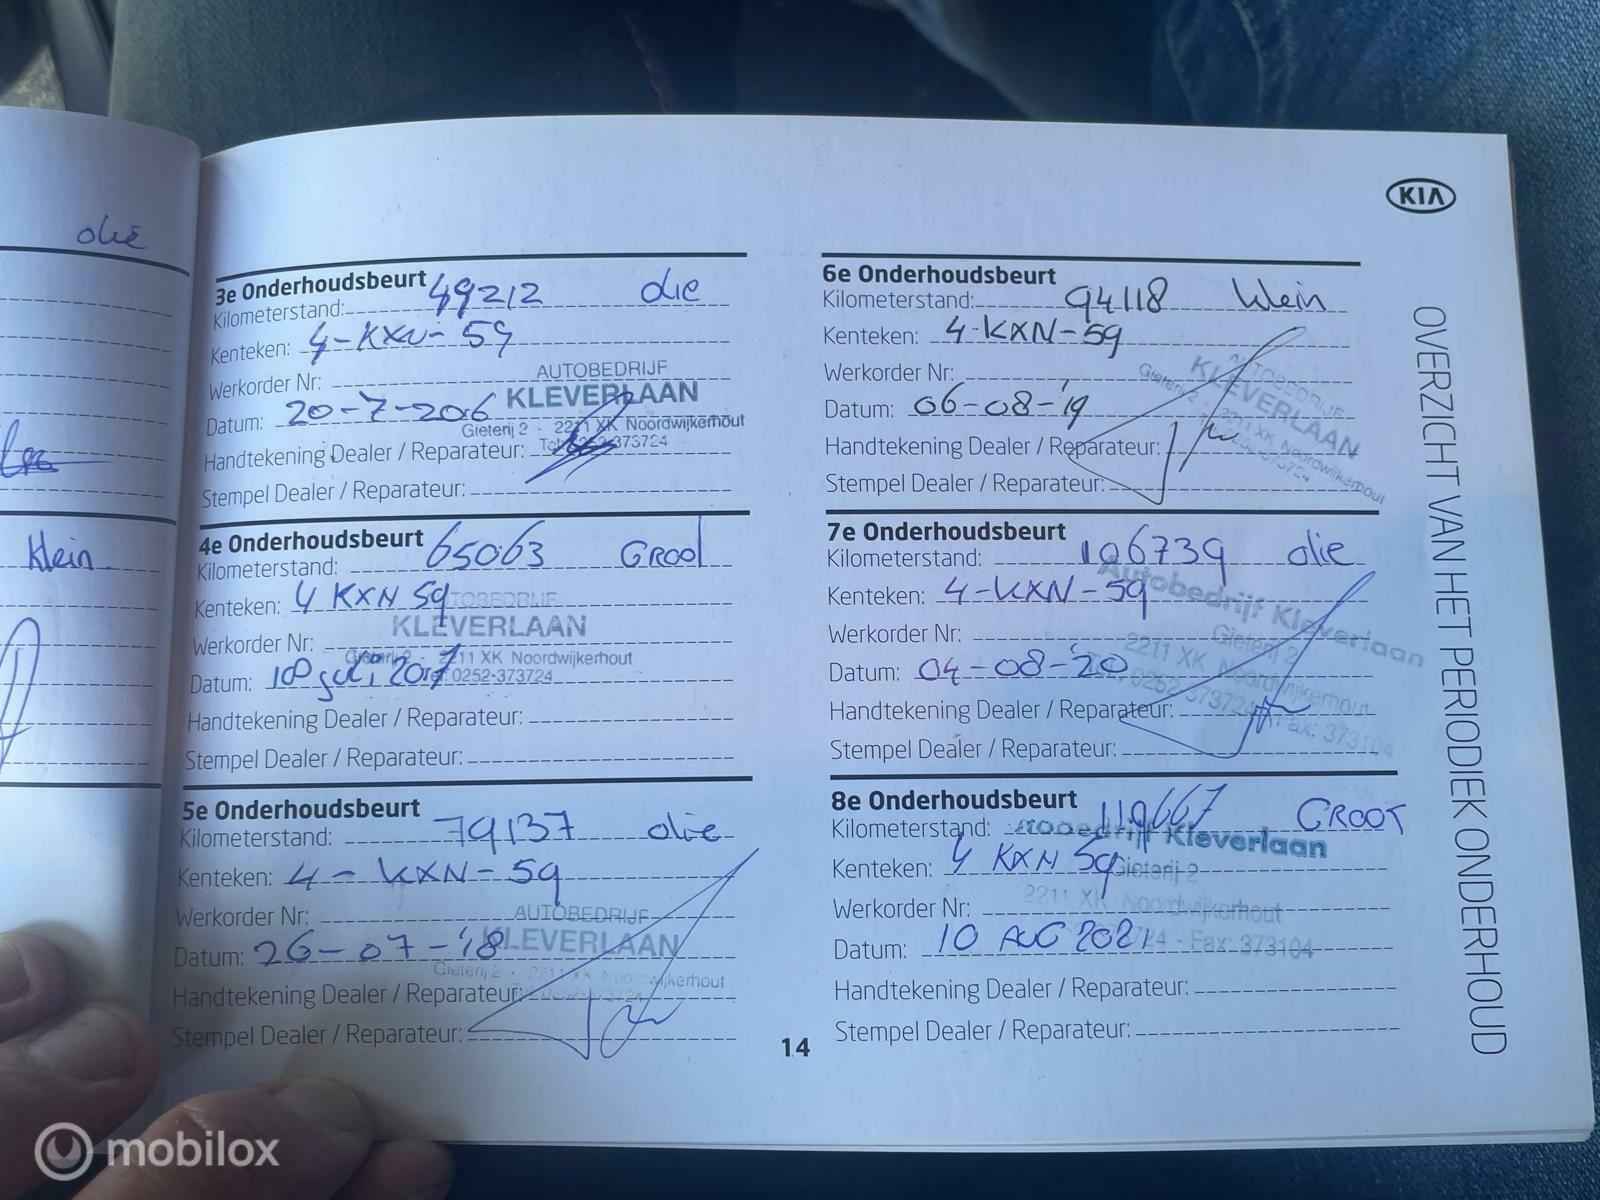 olie
klein
KIA
OVERZICHT VAN HET PERIODIEK ONDERHOUD
3e Onderhoudsbeurt
Kilometerstand: 49212 olie
Kenteken: 4-KXN-59
Werkorder Nr:
Datum: 20-7-2016
Handtekening Dealer / Reparateur:
Stempel Dealer / Reparateur:
AUTOBEDRIJF
KLEVERLAAN
Gieterij 2 - 2211 XK Noordwijkerhout
Tel. 0252-373724
4e Onderhoudsbeurt
Kilometerstand: 65063 GROOT
Kenteken: 4 KXN 59
Werkorder Nr:
Datum: 18 juli 2017
Handtekening Dealer / Reparateur:
Stempel Dealer / Reparateur:
AUTOBEDRIJF
KLEVERLAAN
Gieterij 2 - 2211 XK Noordwijkerhout
Tel. 0252-373724
5e Onderhoudsbeurt
Kilometerstand: 79137 olie
Kenteken: 4-KXN-59
Werkorder Nr:
Datum: 26-07-'18
Handtekening Dealer / Reparateur:
Stempel Dealer / Reparateur:
AUTOBEDRIJF
KLEVERLAAN
Gieterij 2 - 2211 XK Noordwijkerhout
6e Onderhoudsbeurt
Kilometerstand: 94118 klein
Kenteken: 4-KXN-59
Werkorder Nr:
Datum: 06-08-'19
Handtekening Dealer / Reparateur:
Stempel Dealer / Reparateur:
AUTOBEDRIJF
KLEVERLAAN
Gieterij 2 - 2211 XK Noordwijkerhout
7e Onderhoudsbeurt
Kilometerstand: 106739 olie
Kenteken: 4-KXN-59
Werkorder Nr:
Datum: 04-08-'20
Handtekening Dealer / Reparateur:
Stempel Dealer / Reparateur:
Autobedrijf Kleverlaan
Gieterij 2
2211 XK Noordwijkerhout
Tel. 0252-373724 - Fax: 373104
8e Onderhoudsbeurt
Kilometerstand: 119667 GROOT
Kenteken: 4 KXN 59
Werkorder Nr:
Datum: 10 AUG 2021
Handtekening Dealer / Reparateur:
Stempel Dealer / Reparateur:
Autobedrijf Kleverlaan
Gieterij 2
2211 XK Noordwijkerhout
Fax: 373104
14
mobilox